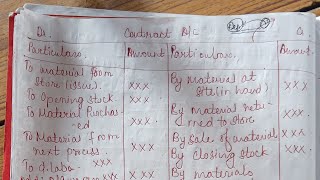 Dr. Contract A/c Cr
Particulars. Amount Particulars. Amount.
To material from
store (issue). xxx
By Material at
site (in hand) xxx
To Opening stock. xxx
To Material Purchas-
ed xxx
By Material retu-
rned to store xxx
To Material from
next process. xxx
By sale of material xxx
By closing stock xxx
xxx
By materials